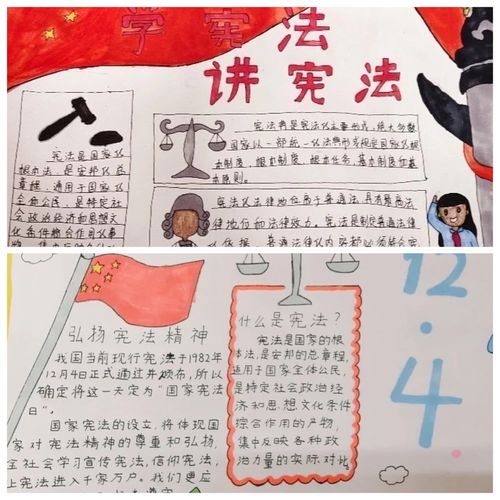 学宪法
讲宪法
宪法是国家的
根本法,是安邦的总
章程,适用于国家
全体公民,是特定社
会政治经济和思想文
化条件综合作用的产
物
宪法典是宪法的主要形式,绝大多数
国家以一部统一的法典形式规定国家的根
本制度、根本制度、根本任务,基本制度和基
本原则。
宪法的法律地位高于普通法,具有最高法
律地位和法律效力。宪法是制定普通法律
的依据,普通法律的内容都必须符合宪
弘扬宪法精神
我国当前现行宪法于1982年
12月4日正式通过并颁布,所以
确定将这一天定为“国家宪法
日”。
国家宪法的设立,将体现国
家对宪法精神的尊重和弘扬,
全社会学习宣传宪法,信仰宪法,
上宪法进入千家万户。我们更应
什么是宪法?
宪法是国家的根
本法,是安邦的总章程,
适用于国家全体公民,
是特定社会政治经
济和思想文化条件
综合作用的产物,
集中反映各种政
治力量的实际对比
12.4